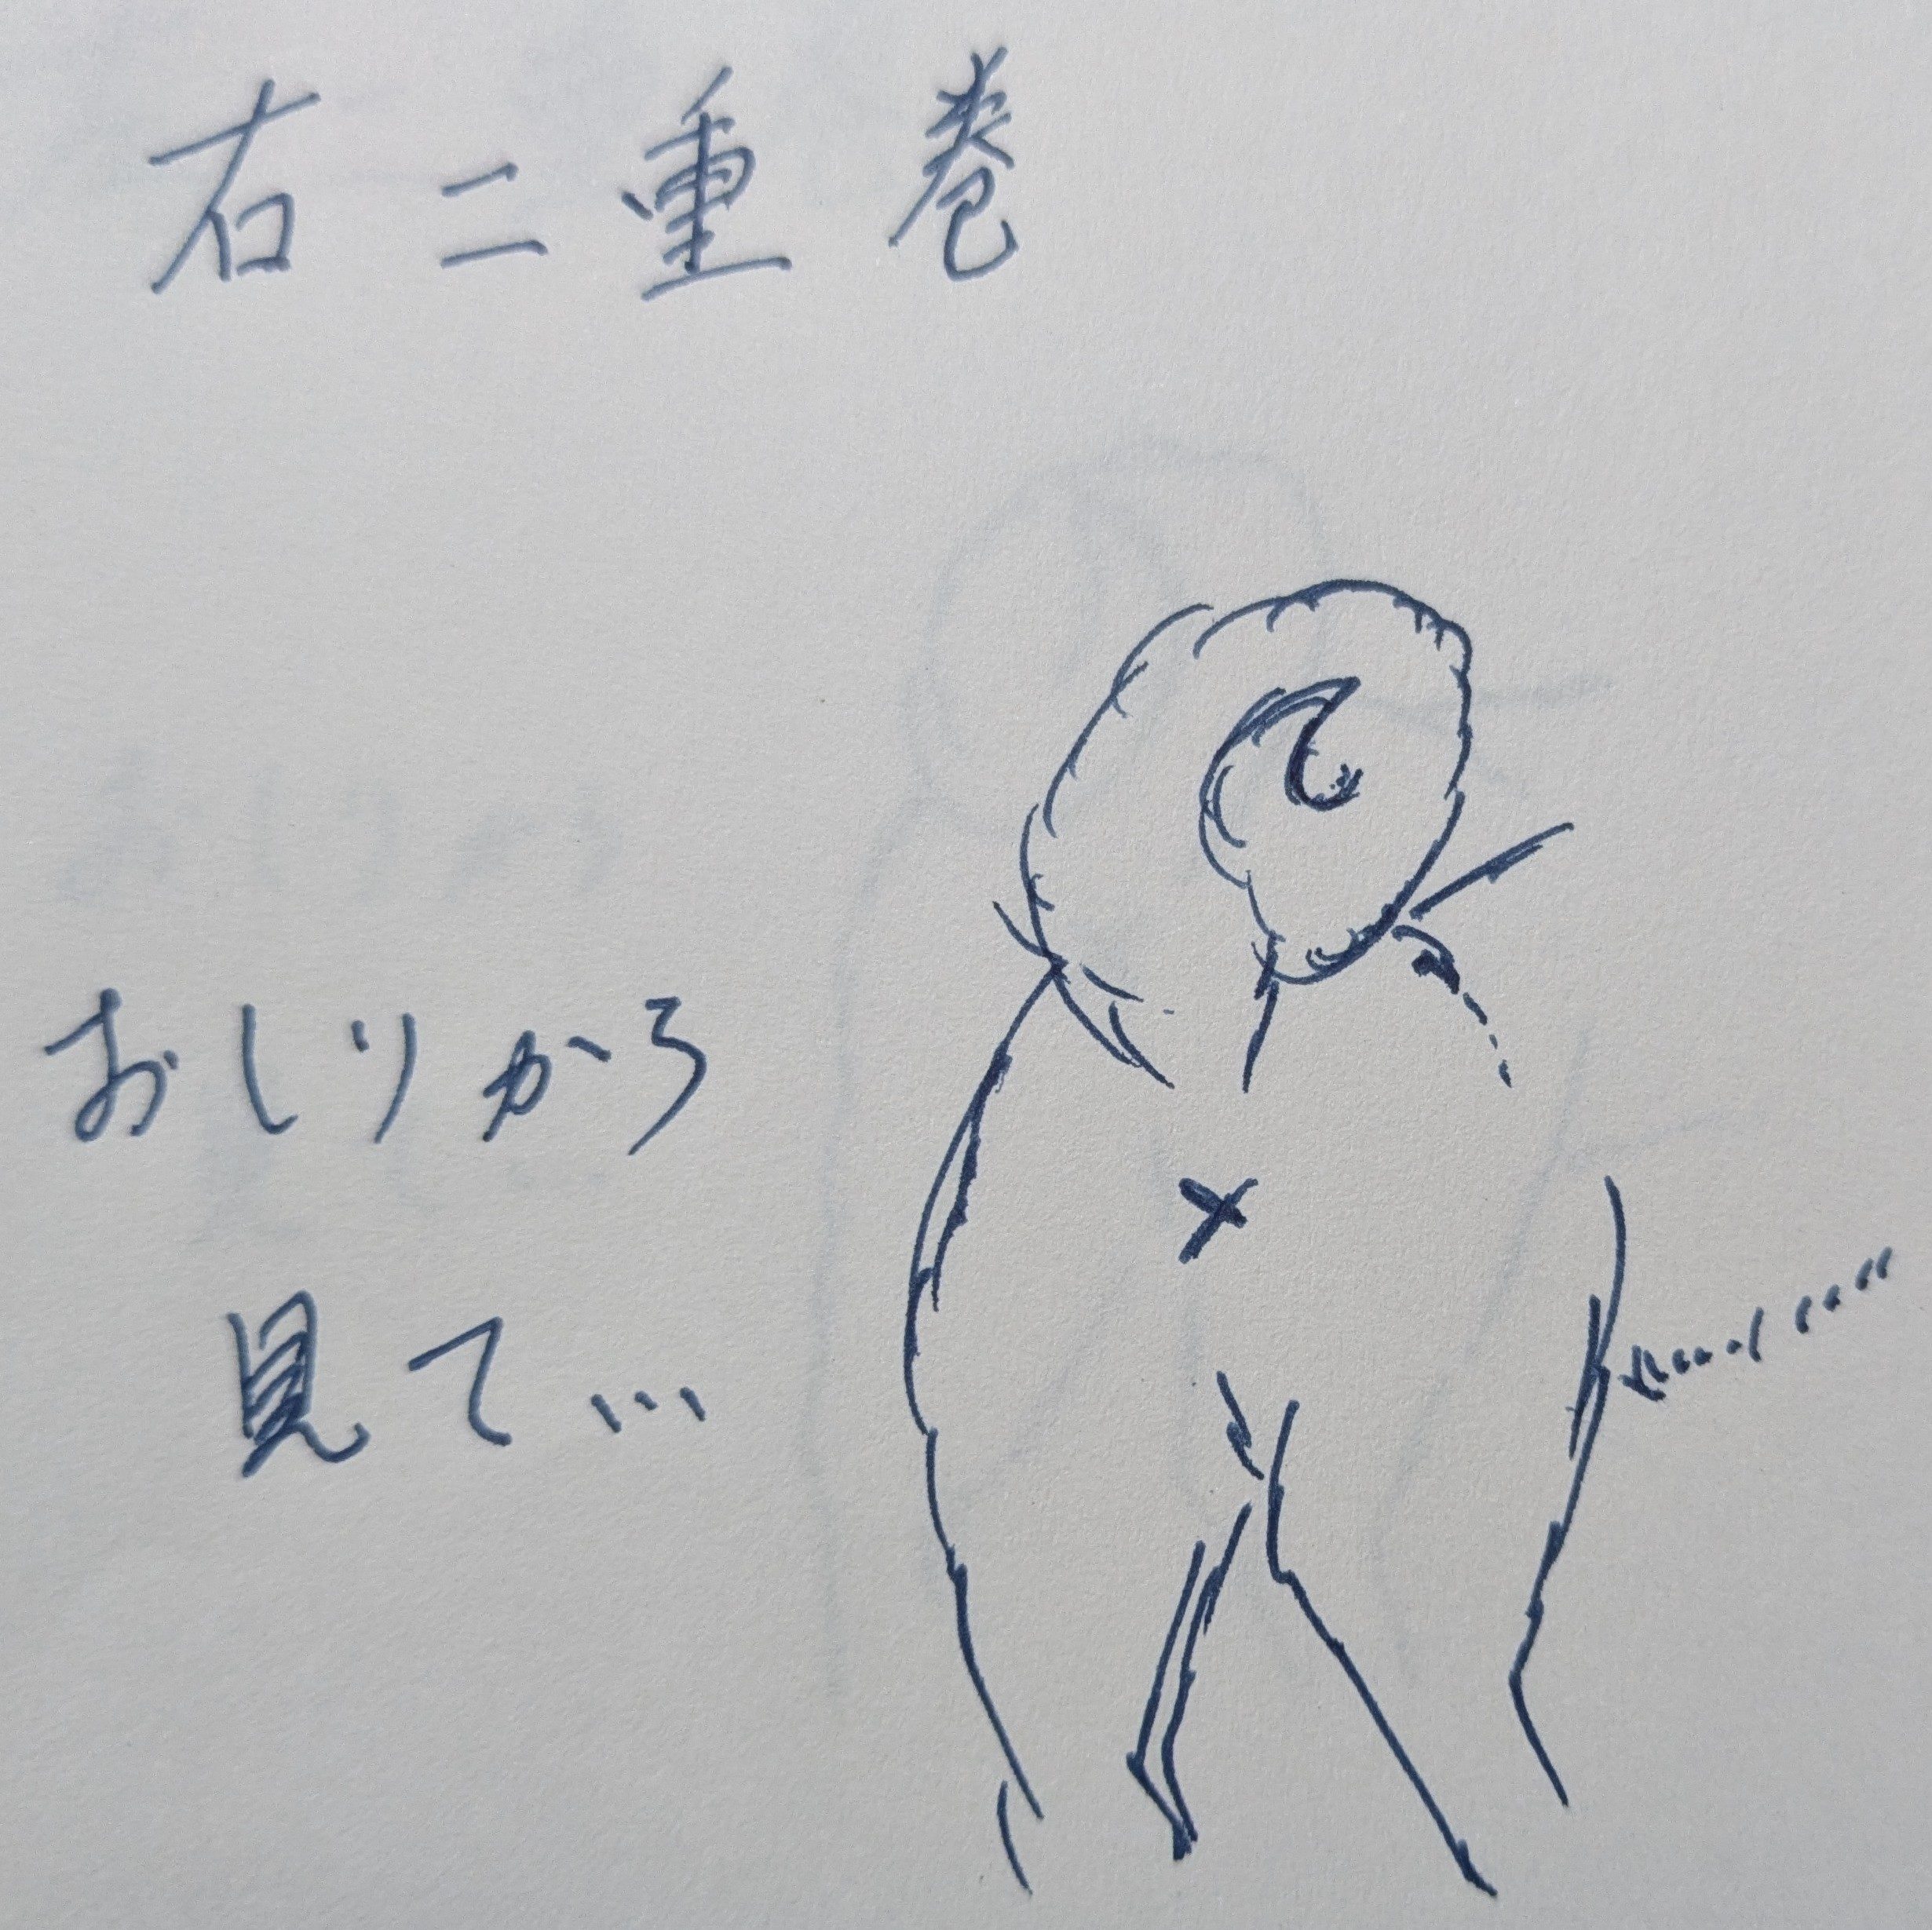 右二重巻
おしりから
見て…